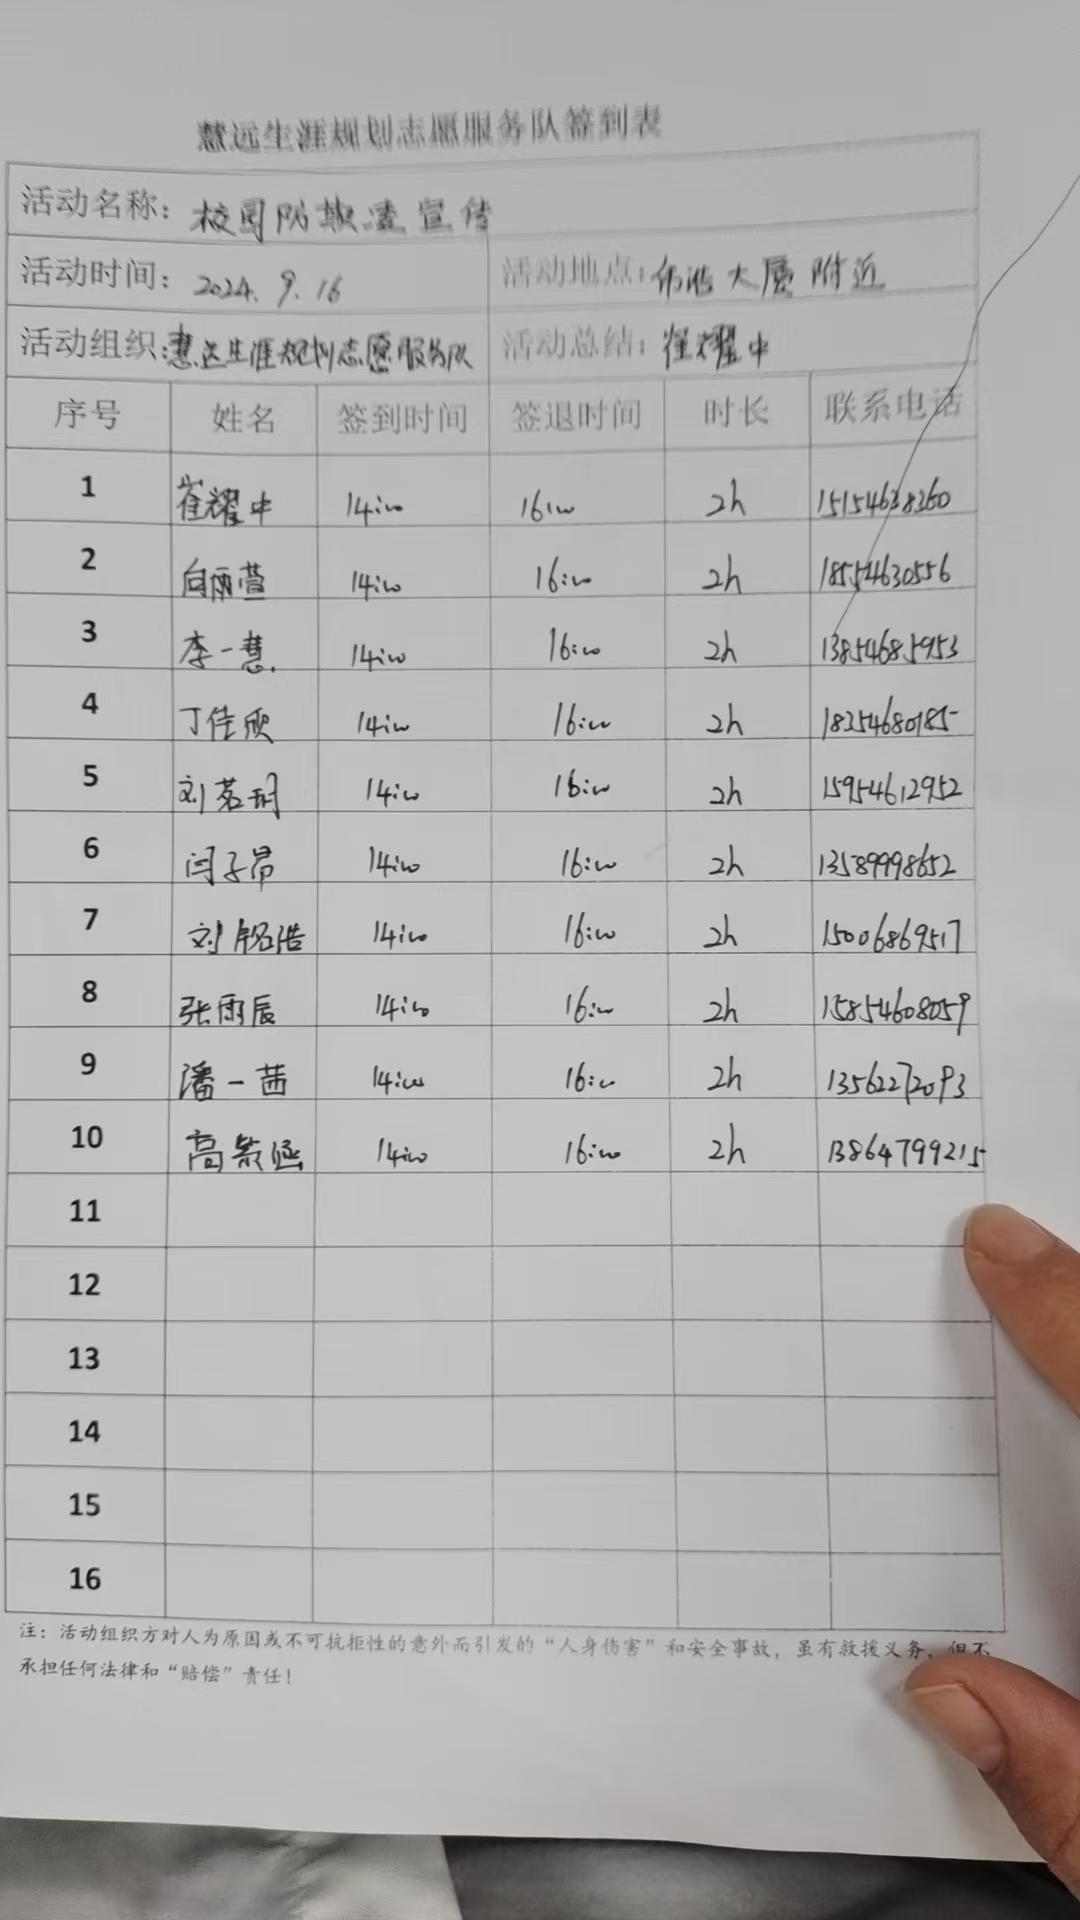 慧远生涯规划志愿服务队签到表
活动名称：校园防欺凌宣传
活动时间：2024.9.16 活动地点：大厦附近
活动组织：慧远生涯规划志愿服务队 活动总结：崔耀中
序号 姓名 签到时间 签退时间 时长 联系电话
1 崔耀中 14:00 16:00 2h 15154638360
2 向丽萱 14:00 16:00 2h 18554630556
3 李一慧 14:00 16:00 2h 13854685953
4 丁佳欣 14:00 16:00 2h 18254680185
5 刘茗玥 14:00 16:00 2h 15954612952
6 闫子昂 14:00 16:00 2h 13589998652
7 刘铭浩 14:00 16:00 2h 15006869517
8 张雨辰 14:00 16:00 2h 15854608059
9 潘一茜 14:00 16:00 2h 13562272093
10 高紫涵 14:00 16:00 2h 13864799215
11
12
13
14
15
16
注：活动组织方对人为原因或不可抗拒性的意外而引发的“人身伤害”和安全事故，虽有救援义务，但不
承担任何法律和“赔偿”责任！